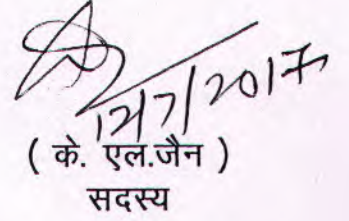 12/7/2017
( के. एल.जैन )
सदस्य